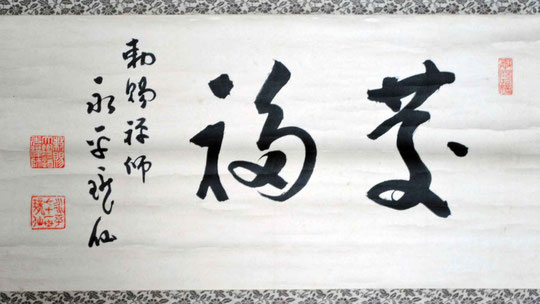 慶福
勅賜禅師
永平瓏仙